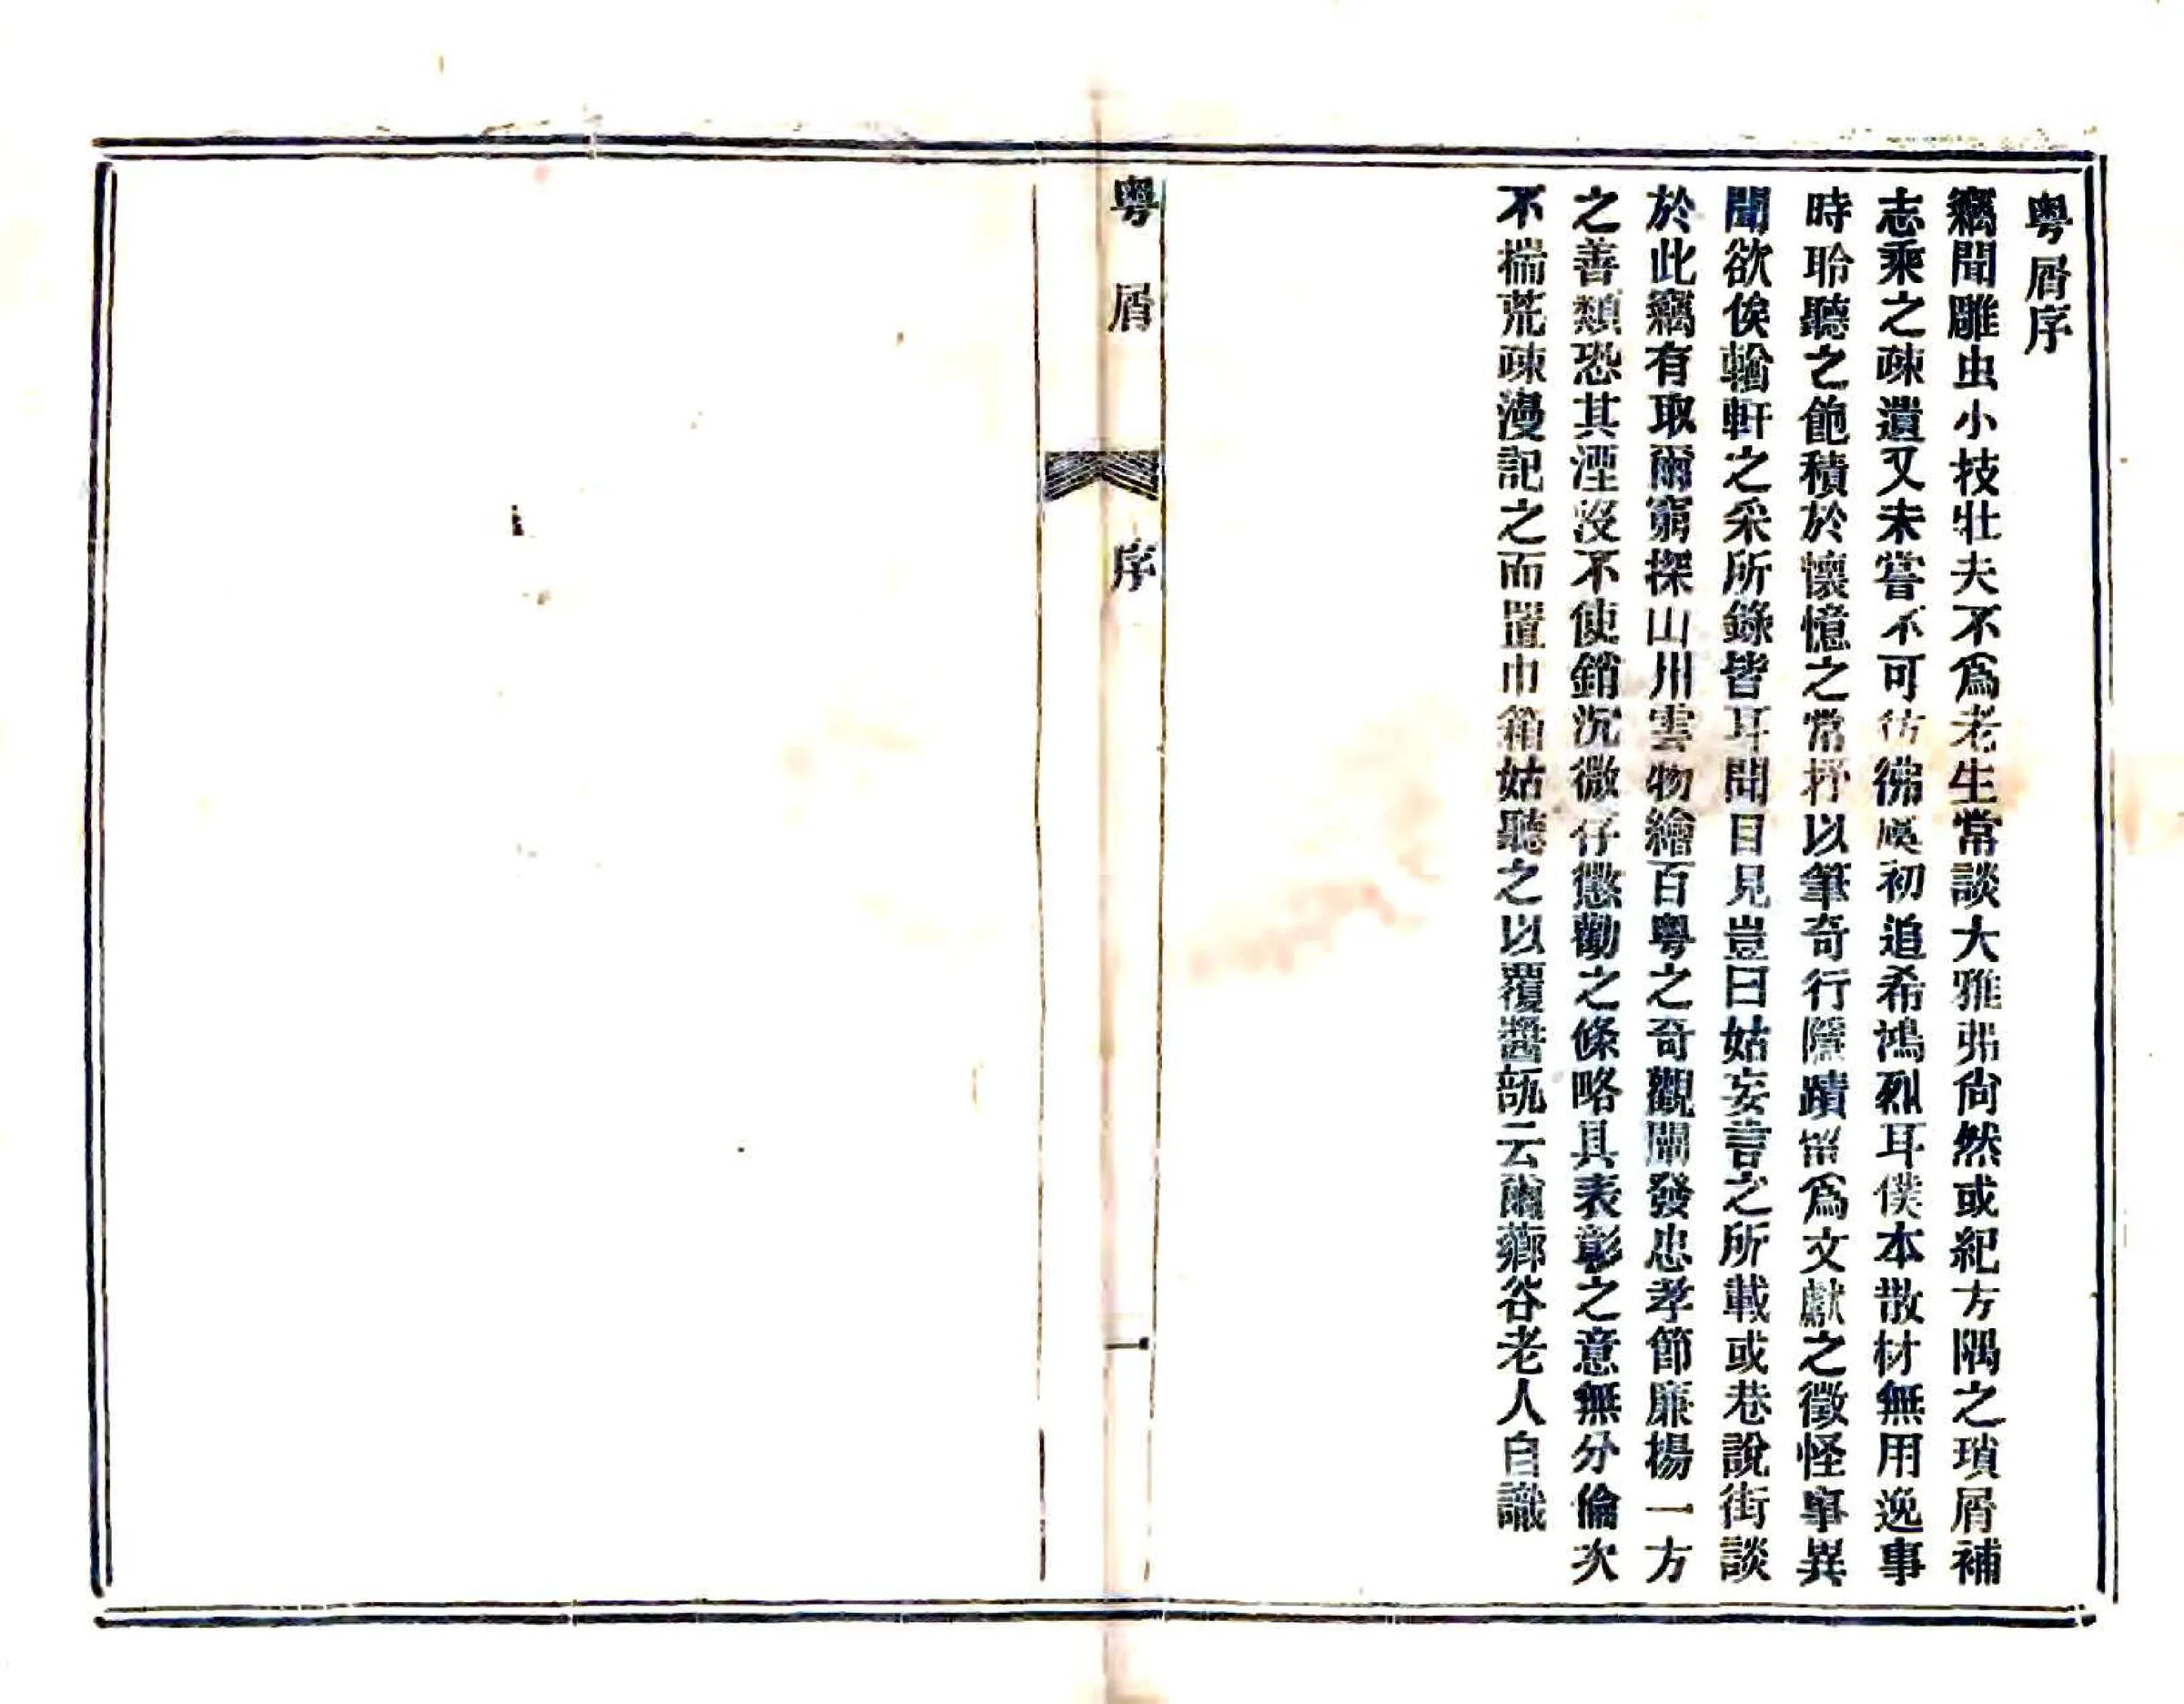 粤屑序
竊聞雕虫小技壯夫不爲老生常談大雅弗尙然或紀方隅之瑣屑補
志乘之疎遺又未嘗不可彷彿虞初追希鴻烈耳僕本散材無用逸事
時聆聽之飽積於懷憶之常抒以筆奇行隱蹟留爲文獻之徵怪事異
聞欲俟輶軒之采所錄皆耳聞目見豈曰姑妄言之所載或巷說街談
於此竊有取爾窮探山川雲物繪百粤之奇觀闡發忠孝節廉揚一方
之善類恐其湮沒不使銷沉微存懲勸之條略具表彰之意無分倫次
不揣荒疎漫記之而置巾箱姑聽之以覆醬瓿云爾薌谷老人自識
粤屑
序
一